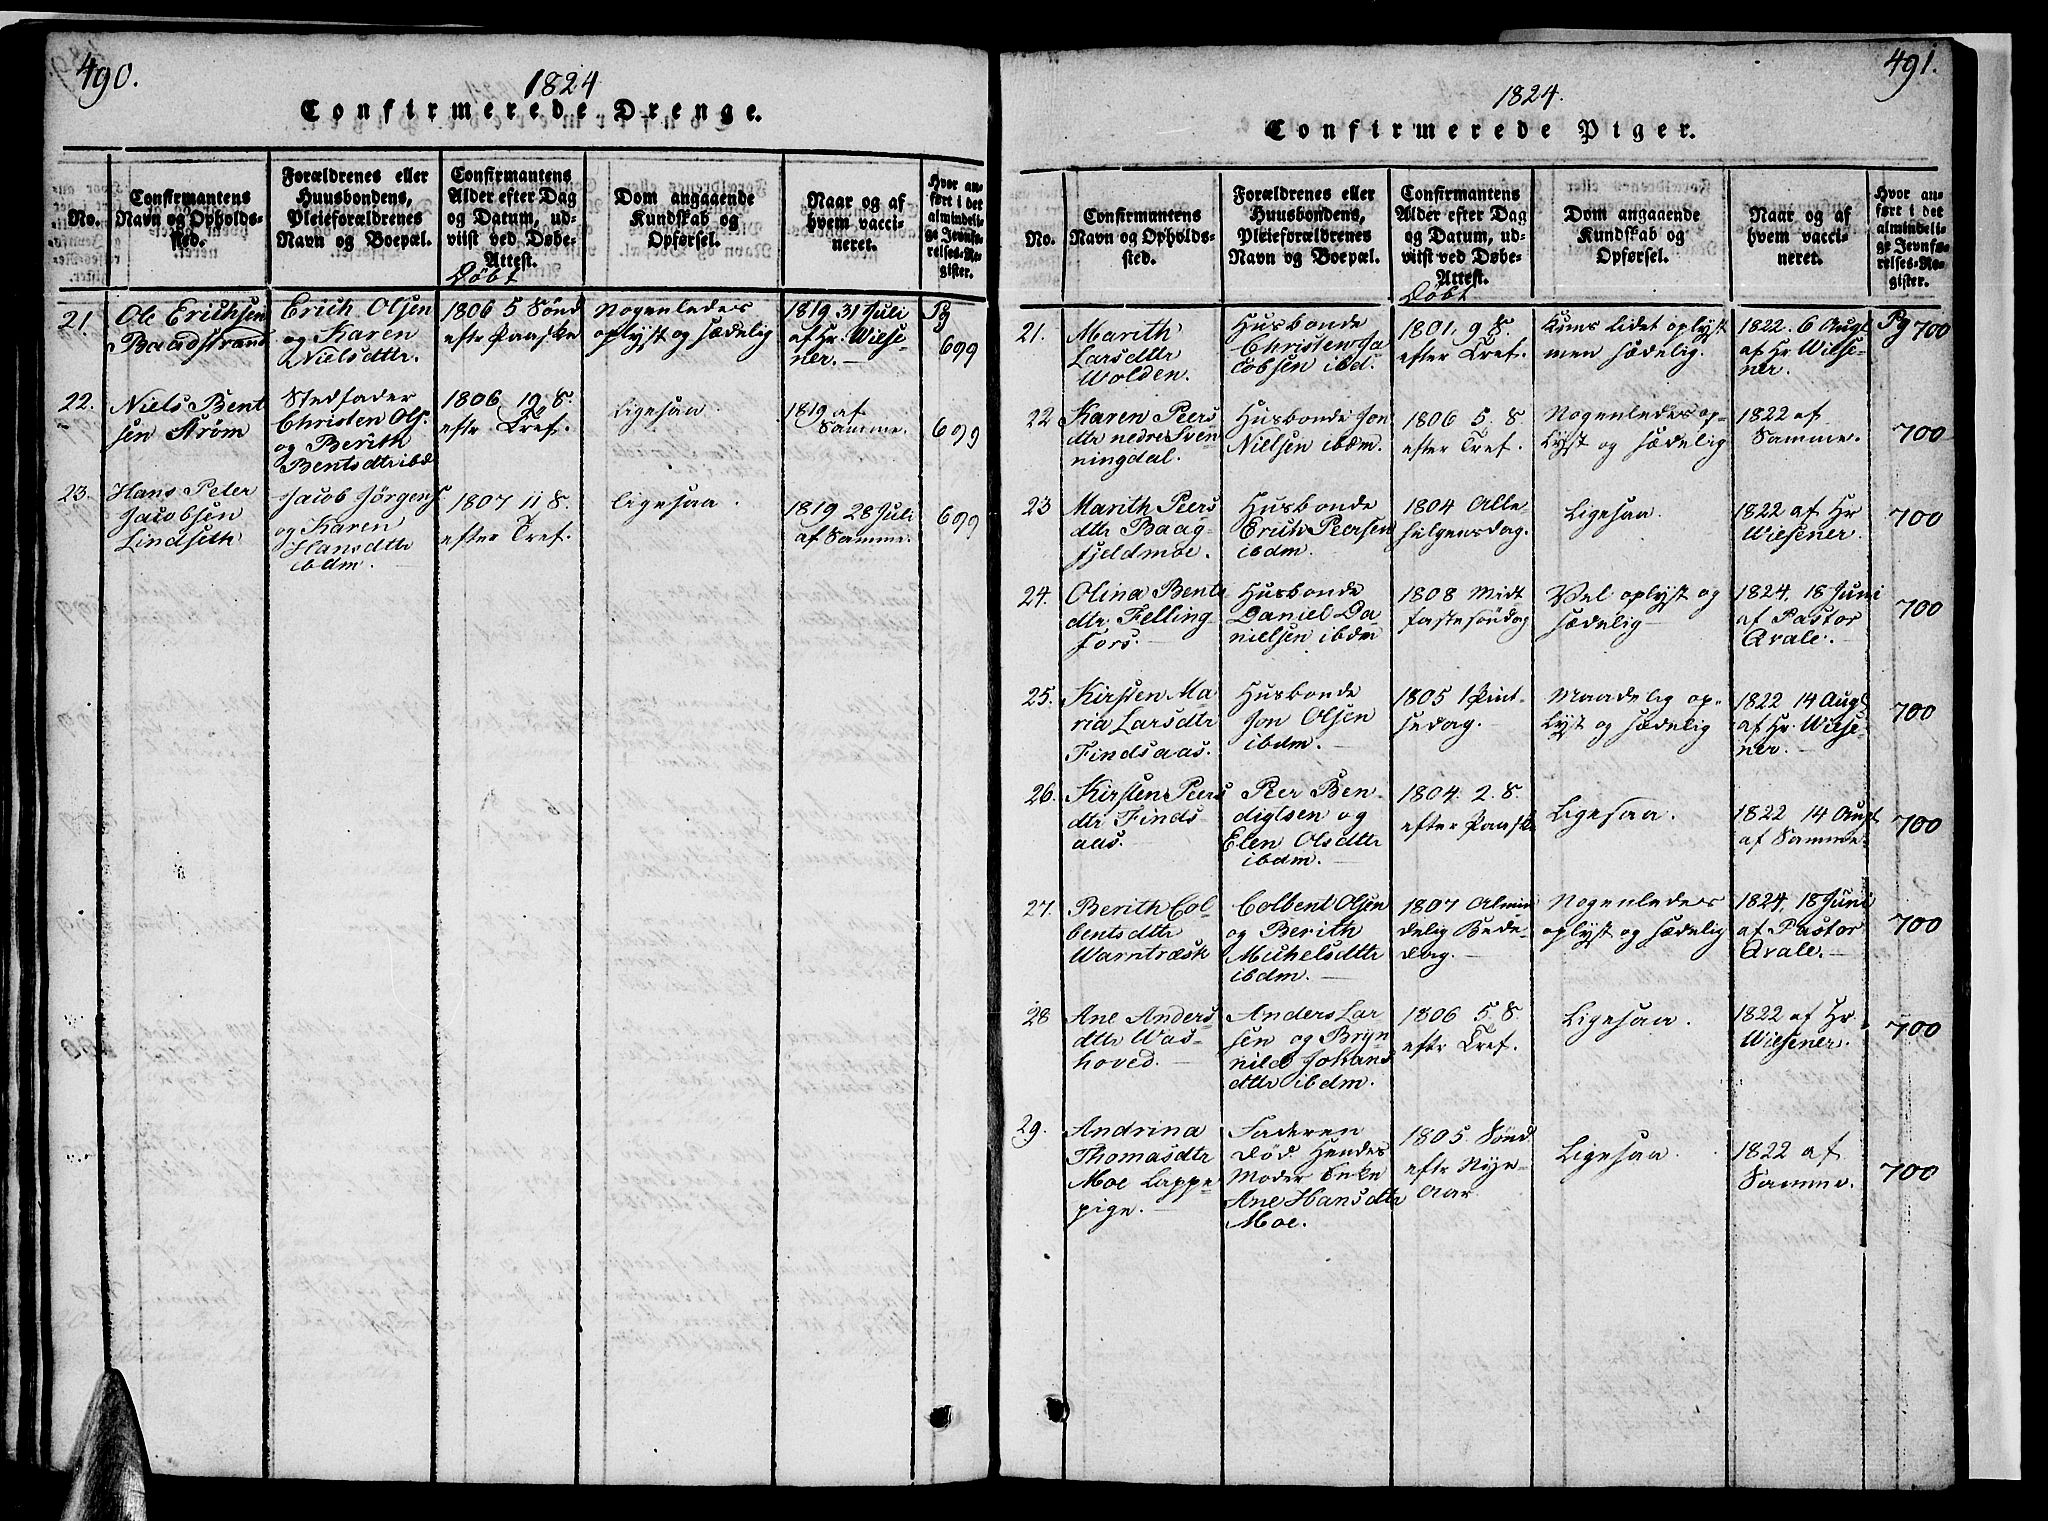 490.
1824
Confirmerede Drenge.
No.
Confirmantens
Navn og Opholds-
sted.
Forældrenes eller
Huusbondens,
Pleieforældrenes
Navn og Boepæl.
Confirmantens
Alder efter Dag
og Datum, ud-
viist ved Døbe-
Attest.
Døbt
Dom angaaende
Kundskab og
Opførsel.
Naar og af
hvem vacci-
neret.
Hvor an-
ført i det
almindeli-
ge Jevnfø-
relses-Re-
gister.
21.
Ole Erichsen
Baadstrand
Erich Olsen
og Karen
Nielsdtr.
1806 5 Sønd
eftr Paaske
Nogenledes
oplyst og sædelig
1819 31 Juli
af Hr. Wilse-
ner.
Pg
699
22.
Niels Bent
sen Strøm
Stedfader
Christen Ols.
og Berith
Bentsdtr ibd
1806 19 S.
eftr Tref.
Ligesaa.
1819 af
Samme.
699
23.
Hans Peter
Jacobsen
Lindseth
Jacob Jørgens.
og Karen
Hansdtr
ibdm.
1807 11 S.
efter Tref.
Ligesaa.
1819 28 Juli
af Samme.
699
491.
1824.
Confirmerede Piger.
No.
Confirmantens
Navn og Opholds-
sted.
Forældrenes eller
Huusbondens,
Pleieforældrenes
Navn og Boepæl.
Confirmantens
Alder efter Dag
og Datum, ud-
viist ved Døbe-
Attest.
Døbt
Dom angaaende
Kundskab og
Opførsel.
Naar og af
hvem vacci-
neret.
Hvor an-
ført i det
almindeli-
ge Jevnfø-
relses-Re-
gister.
21.
Marith
Larsdtr
Wolden.
Husbonde
Christen Ja
cobsen ibd.
1801. 9 S.
efter Tref.
Kuns lidet oplyst
men sædelig.
1822. 6 Augt
af Hr Wilse-
ner.
Pg 700
22
Karen Peers
dtr nedre Sven
ningdal.
Husbonde Jon
Nielsen ibdm.
1806 5. S
efter Tref.
Nogenledes op-
lyst og sædelig
1822 af
Samme.
700
23
Marith Peers
dtr Baag-
fjeldmoe.
Husbonde
Erich Peersen
ibdm.
1804 Alle
helgensdag.
Ligesaa.
1822 af Hr
Wilsener.
700
24.
Olina Bents
dtr Felling-
fors.
Husbonde
Daniel Da
nielsen ibdm
1808 Midt
fastesøndag
Vel oplyst og
sædelig
1824. 18 Juni
af Pastor
Qvale.
700
25.
Kirsten Ma
ria Larsdtr
Findsaas.
Husbonde
Jon Olsen
ibdm.
1805 1 Pint-
sedag.
Maadelig op-
lyst og sædelig
1822 14 Augt
af Hr. Wilse-
ner.
700
26.
Kirsten Peers
dtr Finds-
aas.
Peer Ben-
digtsen og
Elen Olsdtr
ibdm.
1804. 2. S.
efter Paaske
Ligesaa.
1822 14 Augt
af Samme.
700
27.
Berith Col-
bentsdtr
Warntræsk
Colbent Olsen
og Berith
Michelsdtr
ibdm.
1807 Almin
delig Bede-
dag.
Nogenledes
oplyst og sædelig
1824. 18 Juni
af Pastor
Qvale.
700
28
Ane Anders-
dtr Was-
hoved.
Anders Lar
sen og Bryn
nild Johans
dtr ibdm.
1806 5. S.
eftr Tref.
Ligesaa.
1822 af Hr.
Wilsener.
700
29.
Andrina
Thomasdtr
Moe Lappe-
pige.
Faderen
død Hendes
Moder Enke
Ane Hansdtr
Moe.
1805. Sønd.
eftr Nye-
Aar.
Ligesaa.
1822 af
Samme.
700